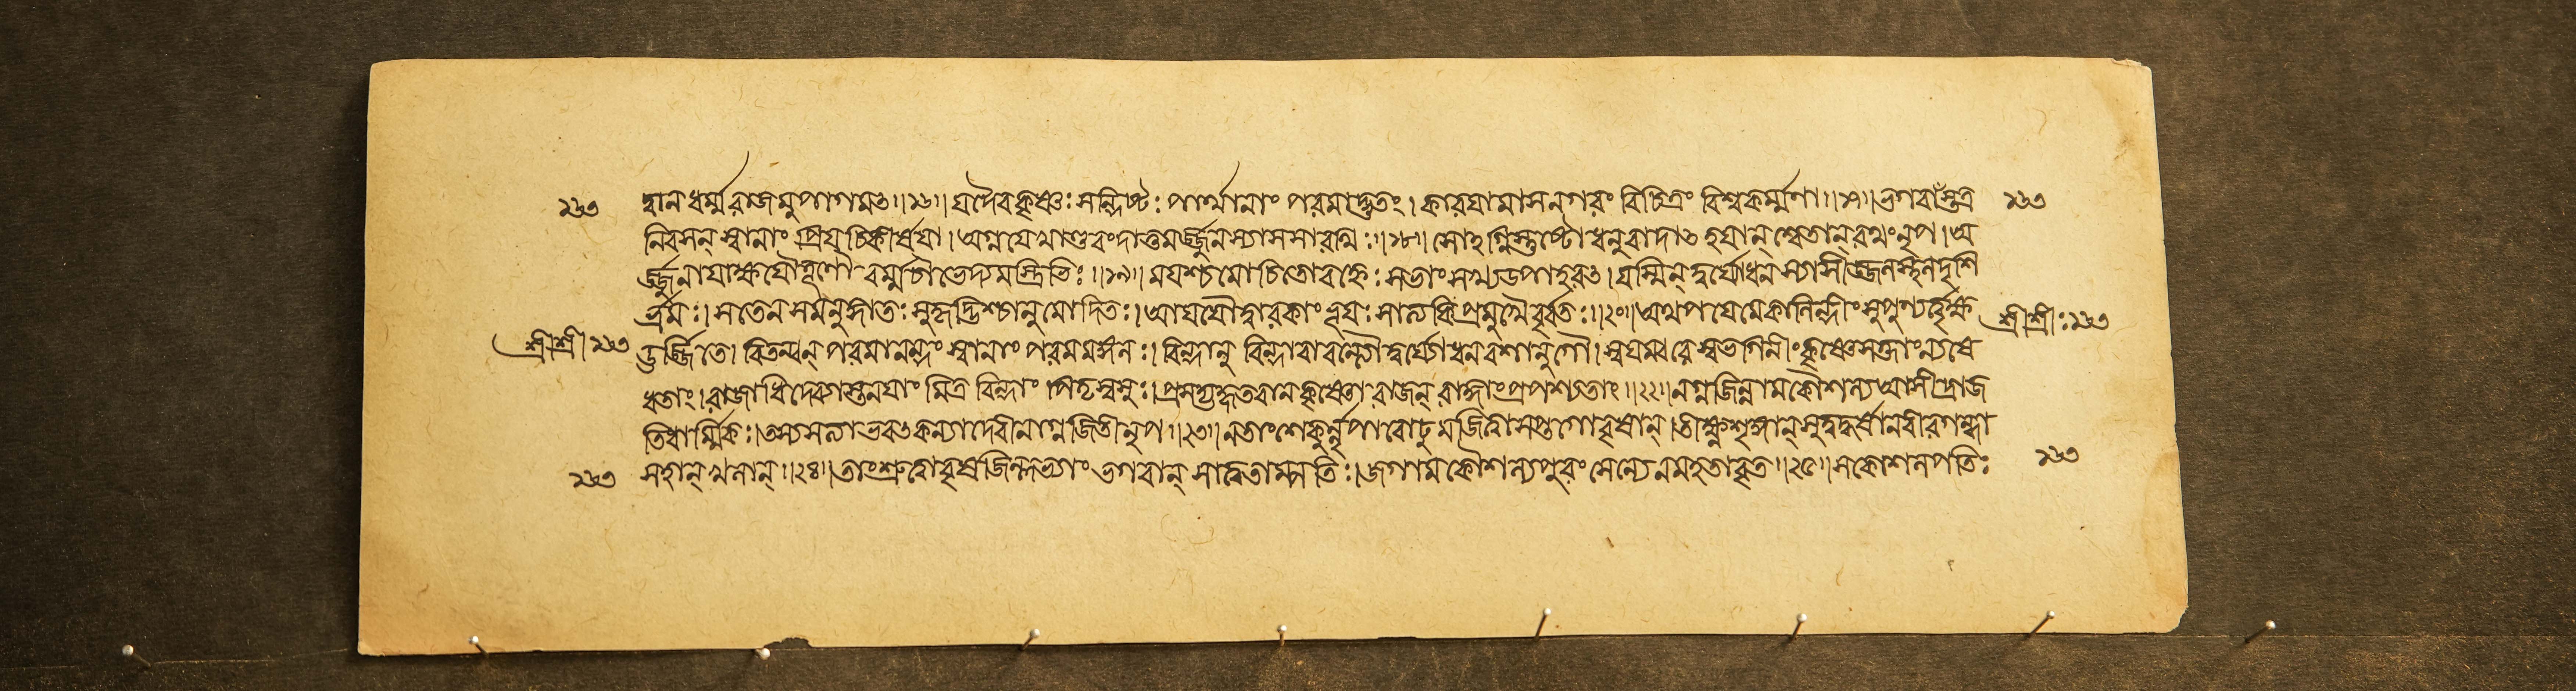 ১৬৩ দ্বান ধর্ম্মরাজমুপাগমৎ।।১৬।। যদৈব কৃষ্ণঃ সন্দিষ্টঃ পার্থানাং পরমাদ্ভুতং। কারয়ামাস নগরং বিচিত্রং বিশ্বকর্ম্মণা।।১৭।। ভগবাংস্তত্র ১৬৩
নিবসন্ স্বানাং প্রিয়চিকীর্ষয়া। অগ্নয়ে খাণ্ডবং দাতুমর্জ্জুনস্যাস সারথিঃ।।১৮।। সোঽগ্নিস্তুষ্টো ধনুরাদাৎ হয়ান্ শ্বেতান্ রথং নৃপ। অ
র্জ্জুনায়াক্ষয়ৌ তূণৌ বর্ম্ম চাভেদ্যমস্ত্রিভিঃ।।১৯।। ময়শ্চ মোচিতো বহ্নেঃ সভাং সখ্য উপাহরৎ। যস্মিন্ দুর্য্যোধনস্যাসীজ্জলস্থলদৃশি
ভ্রমঃ। স তেন সমনুজ্ঞাতঃ সুহৃদ্ভিশ্চানুমোদিতঃ। আয়যৌ দ্বারকাং ভূয়ঃ সাত্যকিপ্রমুখৈর্বৃতঃ।।২০।। অথোপযেমে কালিন্দীং সুপুণ্যর্ত্ত্বৃক্ষ
শ্রী শ্রী ১৬৩ ঊর্জ্জিতে। বিতন্বন্ পরমানন্দং স্বানাং পরমমঙ্গলঃ। বিন্দানুবিন্দাবাবন্ত্যৌ দুর্য্যোধনবশানুগৌ। স্বয়ম্বরে স্বভগিনীং কৃষ্ণে সক্তাং ন্যষে শ্রী শ্রীঃ ১৬৩
ধতাং। রাজাধিদেব্যাস্তনয়াং মিত্রবিন্দাং পিতৃস্বসুঃ। প্রসহ্য হৃতবান কৃষ্ণো রাজন্ রাজ্ঞাং প্রপশ্যতাং।।২২।। নগ্নজিন্নাম কৌশল্য আসীদ্রাজ
তিধার্ম্মিকঃ। তস্য সত্যাভবৎ কন্যা দেবী নাগ্নজিতী নৃপ।।২৩।। ন তাং শেকুর্নৃপা বোঢুমজিত্বা সপ্ত গোবৃষান্। তীক্ষ্ণশৃঙ্গান্ সুদুর্দ্ধর্ষান্ বীরগন্ধা
১৬৩ সহান্ খলান্।।২৪।। তাং শ্রুত্বা বৃষজিল্লভ্যাং ভগবান্ সাত্বতাম্পতিঃ। জগাম কৌশল্যপুরং সৈন্যেন মহতা বৃত।।২৫।। স কোশলপতিঃ ১৬৩